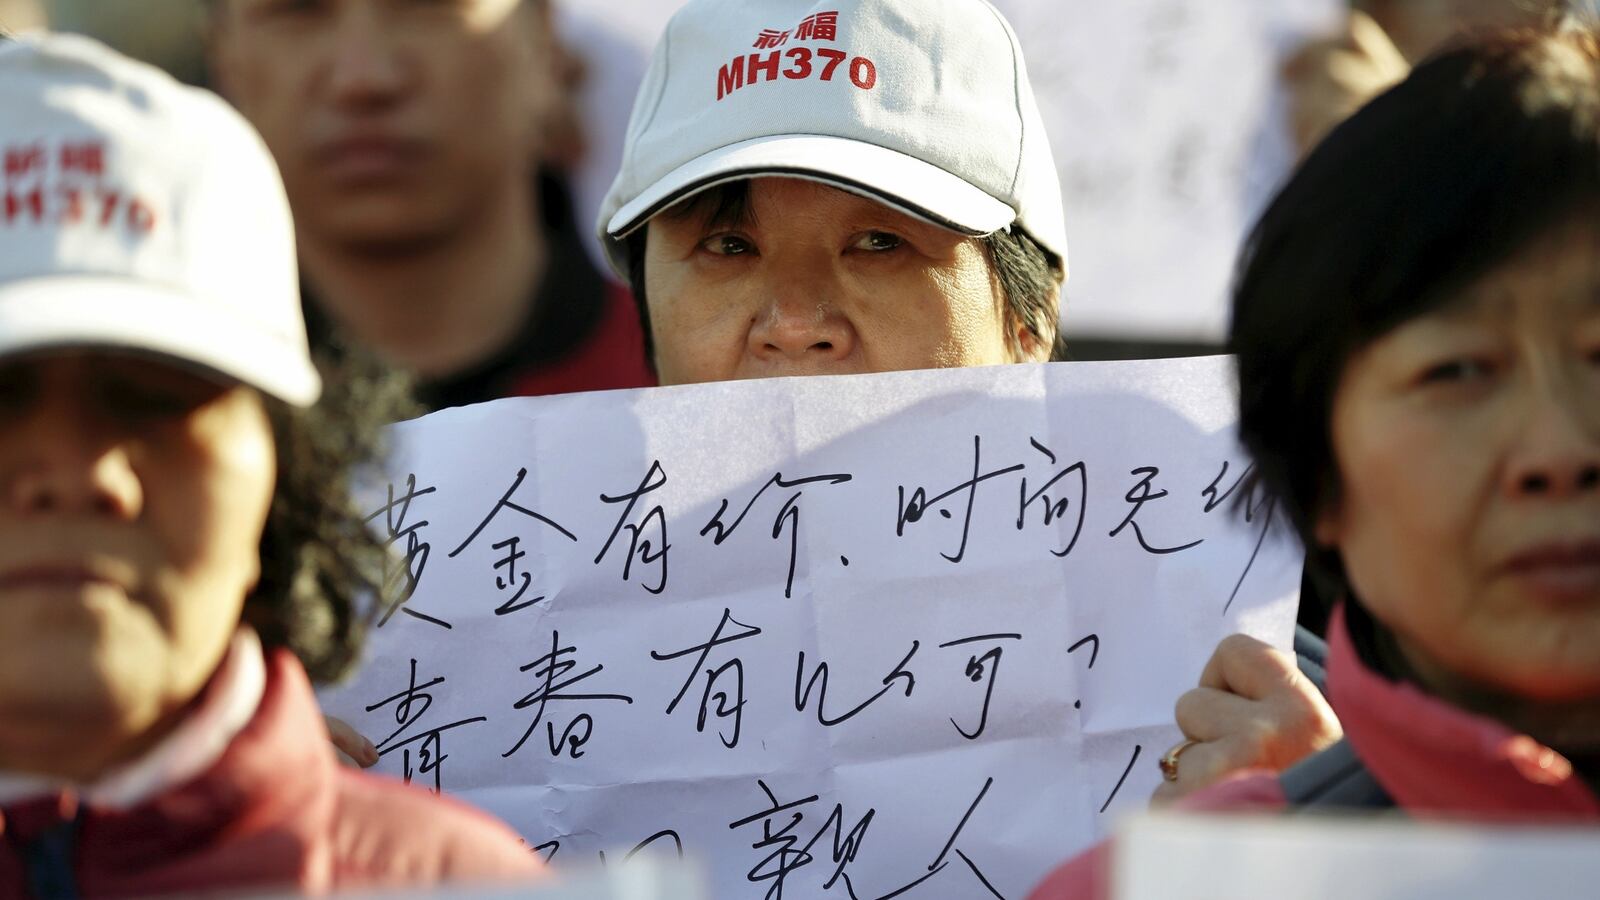 祈福
MH370
祈福
MH370
黄金有价、时间无价
青春有几何?
亲人